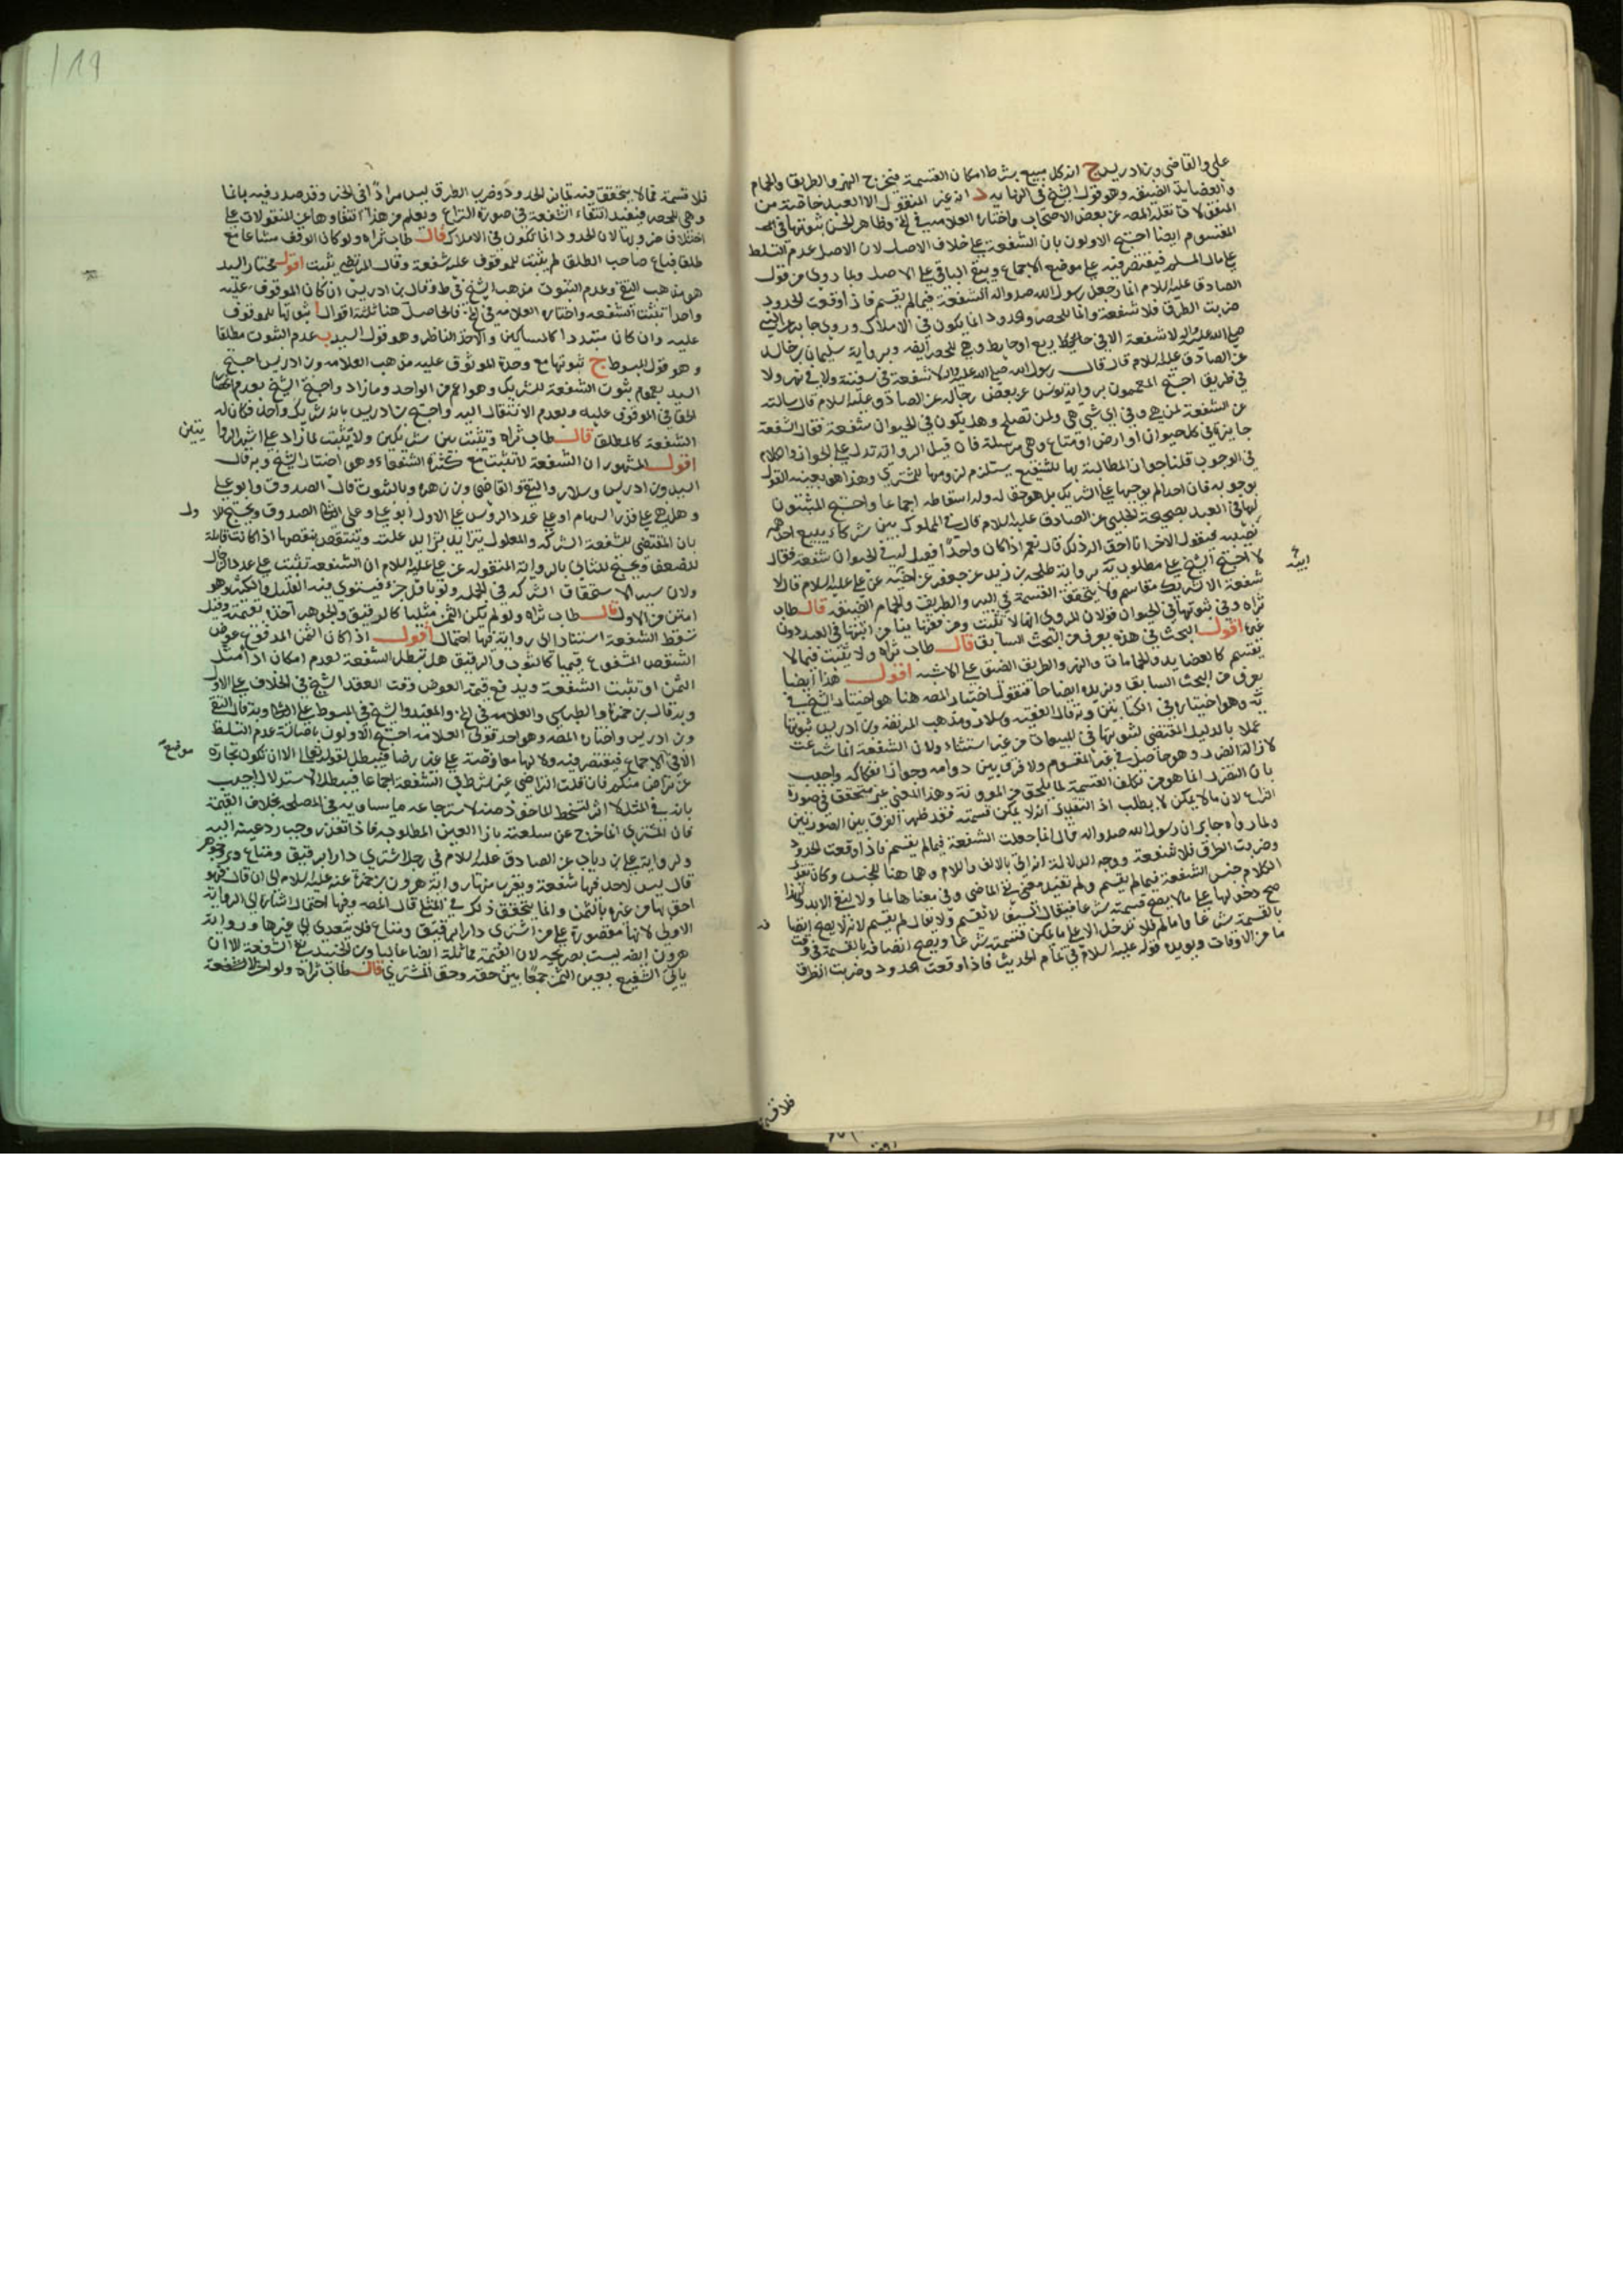 علي والقاضي وبن ادريس ج انه كل مبيع بشرط امكان القسمة فيخرج النهر والطريق والحمام
والعضايد الضيقه وهو قول الشيخ في النهايه د انه غير المنقول الا العبد خاصة من
المنقولات نقله المصه عن بعض الاصحاب واختاره العلامه في
المقسوم ايضا احتج الاولون بان الشفعة على خلاف الاصل لان الاصل عدم التسلط
على مال المسلم فيقتصر فيه على موضع الاجماع ويبقى الباقي على الاصل وبما روى من قول
الصادق عليه السلام انما جعل رسول الله صلى الله واله الشفعة فيما لم يقسم فاذا وقعت الحدود
ضربت الطرق فلا شفعة وانما للحصر والحدود انما يكون في الاملاك وروى جابر عن النبي
صلى الله عليه واله لا شفعة الا في ربع او حايط وهي للحصر ايضه وبرواية سليمان بن خالد
عن الصادق عليه السلام قال قال رسول الله صلى الله عليه واله لا شفعة في سفينة ولا في نهر ولا
في طريق احتج المعممون برواية يونس عن بعض رجاله عن الصادق عليه السلام قال سالته
عن الشفعة لمن هي وفي اي شي هي ولمن تصلح وهل يكون في الحيوان شفعة فقال الشفعة
جايزة في كل حيوان او ارض او متاع وهي مرسلة فان قيل الرواية تدل على الجواز والكلام
في الوجوب قلنا جواز المطالبة بها للشفيع يستلزم لزومها للمشتري وهذا هو بعينه القول
بوجوبه فان احدا لم يوجبها على الشريك بل هو حق له وله اسقاطه اجماعا واحتج المثبتون
لها في العبد بصحيحة الحلبي عن الصادق عليه السلام قال في المملوك بين شركاء يبيع احدهم
نصيبه فيقول الاخر انا احق اله ذلك قال نعم اذا كان واحدا فقيل له في الحيوان شفعة فقال
لا احتج الشيخ على مطلوبه برواية طلحه بن زيد عن جعفر عن ابيه عن علي عليه السلام قال لا
ابيه
شفعة الا لشريك مقاسم ولا يتحقق القسمة في البير والطريق والحمام الضيقه قال طاب
ثراه وفي ثبوتها في الحيوان قولان المروي انها لا تثبت ومن فقهائنا من اثبتها في العبد دون
غيره اقول البحث في هذه يعرف من البحث السابق قال طاب ثراه ولا يثبت فيما لا
ينقسم كالعضايد والحمامات والنهر والطريق الضيق على الاشبه اقول هذا ايضا
يعرف من البحث السابق ونزيده ايضاحا فنقول اختيار المصه هنا هو اختيار الشيخ في
يه وهو اختياره في الكتابين وبه قال الفقيه وسلار ومذهب المرتضى وبن ادريس ثبوتها
عملا بالدليل المقتضي لثبوتها في المبيعات من غير استثناء ولان الشفعة انما شرعت
لازالة الضرر وهو حاصل في غير المقسوم ولا فرق بين دوامه وجواز انفكاكه واجيب
بان الضرر انما هو من تكلف القسمة لما يلحق من المعونة وهذا المعنى غير متحقق في صورة
النزاع لان ما لا يمكن لا يطلب اذ التقدير انه لا يمكن قسمته فقد ظهر الفرق بين الصورتين
وبما رواه جابر ان رسول الله صلى الله واله قال انما جعلت الشفعة فيما لم يقسم فاذا وقعت الحدود
وضربت الطرق فلا شفعة ووجه الدلالة انه اتى بالالف واللام وهما هنا للجنس وكان تقدير
الكلام جنس الشفعة فيما لم يقسم ولم تفيد معنى نفي الماضي وفي معناها لما ولا لنفي الابد ولهذا
صح دخولها على ما لا يصح قسمته شرعا فيقال السيف لا تقسم ولا يقال لم يقسم لانه لا يصح ايضا
بالقسمة شرعا واما لم فلا تدخل الا على ما يمكن قسمته شرعا ويصح اتصافه بالقسمة في وقت
ما من الاوقات ويويده قوله عليه السلام في تمام الحديث فاذا وقعت الحدود وضربت الطرق
١١٩
فلا قسمة فما لا يتحقق فيه تمايز الحدود وضرب الطرق ليس مرادا في الخبر وقد صدر فيه بانما
وهي للحصر فيفيد انتفاء الشفعة في صورة النزاع ويعلم من هذا انتفاوها عن المنقولات على
اختلاف ضروبها لان الحدود انما تكون في الاملاك قال طاب ثراه ولو كان الوقف مشاعا مع
طلق فباع صاحب الطلق لم يثبت للموقوف عليه شفعة وقال المرتضى يثبت اقول مختار السيد
هو مذهب التقي وعدم الثبوت مذهب الشيخ في ط وقال بن ادريس ان كان الموقوف عليه
واحدا تثبت الشفعه واختاره العلامه في فالحاصل هنا ثلثة اقوال ا ثبوتها للموقوف
عليه وان كان متعددا كالمساكين والاخذ الناظر وهو قول السيد ب عدم الثبوت مطلقا
وهو قول المبسوط ج ثبوتها مع وحدة الموقوف عليه مذهب العلامه وبن ادريس احتج
السيد بعموم ثبوت الشفعة للشريك وهو اعم من الواحد وما زاد واحتج الشيخ بعدم انحصار
الحق في الموقوف عليه وبعدم الانتقال اليه واحتج بن ادريس بانه شريك واحد فكان له
الشفعة كالمطلق قال طاب ثراه وتثبت بين شريكين ولا يثبت لما زاد على اشهر الروا
يتين
اقول المشهور ان الشفعة لا تثبت مع كثرة الشفعاء وهو اختيار الشيخ وبه قال
السيد وبن ادريس وسلار والتقي والقاضي وبن زهره وبالثبوت قال الصدوق وابو علي
وهل هي على قدر السهام او على عدد الروس على الاول ابو علي وعلى الثاني الصدوق ويحتج للا
ول
بان المقتضي للشفعة الشركه والمعلول يتزايد بتزايد علته وينتقص بنقصها اذا كانت قابلة
للضعف ويحتج للثاني بالرواية المنقوله عن علي عليه السلام ان الشفعه تثبت على عدد الرجال
ولان سبب الاستحقاق الشركه في الجمله ولو باقل جزء فيستوي فيه القليل والكثير وهو
امتن من الاول قال طاب ثراه ولو لم يكن الثمن مثليا كالرقيق والجوهر اخذه بقيمته وقيل
تسقط الشفعة استنادا الى رواية فيها احتمال اقول اذا كان الثمن المدفوع عوض
الشقص المشفوع قيميا كالثوب والرقيق هل تبطل الشفعة لعدم امكان اخذ مثل
الثمن او تثبت الشفعة ويدفع قيمة العوض وقت العقد الشيخ في الخلاف على الاول
وبه قال بن حمزة والطبرسي والعلامه في والمفيد والشيخ في المبسوط على الثاني وبه قال التقي
وبن ادريس واختاره المصه وهو احد قولي العلامه احتج الاولون باصالة عدم التسلط
الا في الاجماع فيقتصر فيه ولانها معاوضة على غير رضا فيبطل لقوله تعالى الا ان تكون تجارة
موضع
عن تراض منكم فان قلت التراضي غير شرط في الشفعة اجماعا فيبطل الاستدلال اجيب
بانه في المثل لا اثر لتسخط الماخوذ منه لاسترجاعه ما يساويه في المصلحه بخلاف القيمة
فان المشتري انما خرج عن سلعته بازا العين المطلوبه فاذا تعذر وجب رد عينه اليه
ولرواية علي بن رياب عن الصادق عليه السلام في رجل اشترى دارا برقيق ومتاع وبز وجوهر
قال ليس لاحد فيها شفعة ويقرب منها رواية هرون بن حمزة عنه عليه السلام الى ان قال فهو
احق بها من غيره بالثمن وانما يتحقق ذلك في المثل قال المصه وفيها احتمال اشارة الى الرواية
الاولى لانها مقصورة على من اشترى دارا برقيق ومتاع فلا يتعدى الى غيرها ورواية
هرون ايضه ليست بصريحه لان القيمة مماثلة ايضا غالبا وبن الجنيد منع الشفعة الا ان
ياتي الشفيع بعين الثمن جمعا بين حقه وحق المشتري قال طاب ثراه ولو اخر الشفعة
فلا قسمة